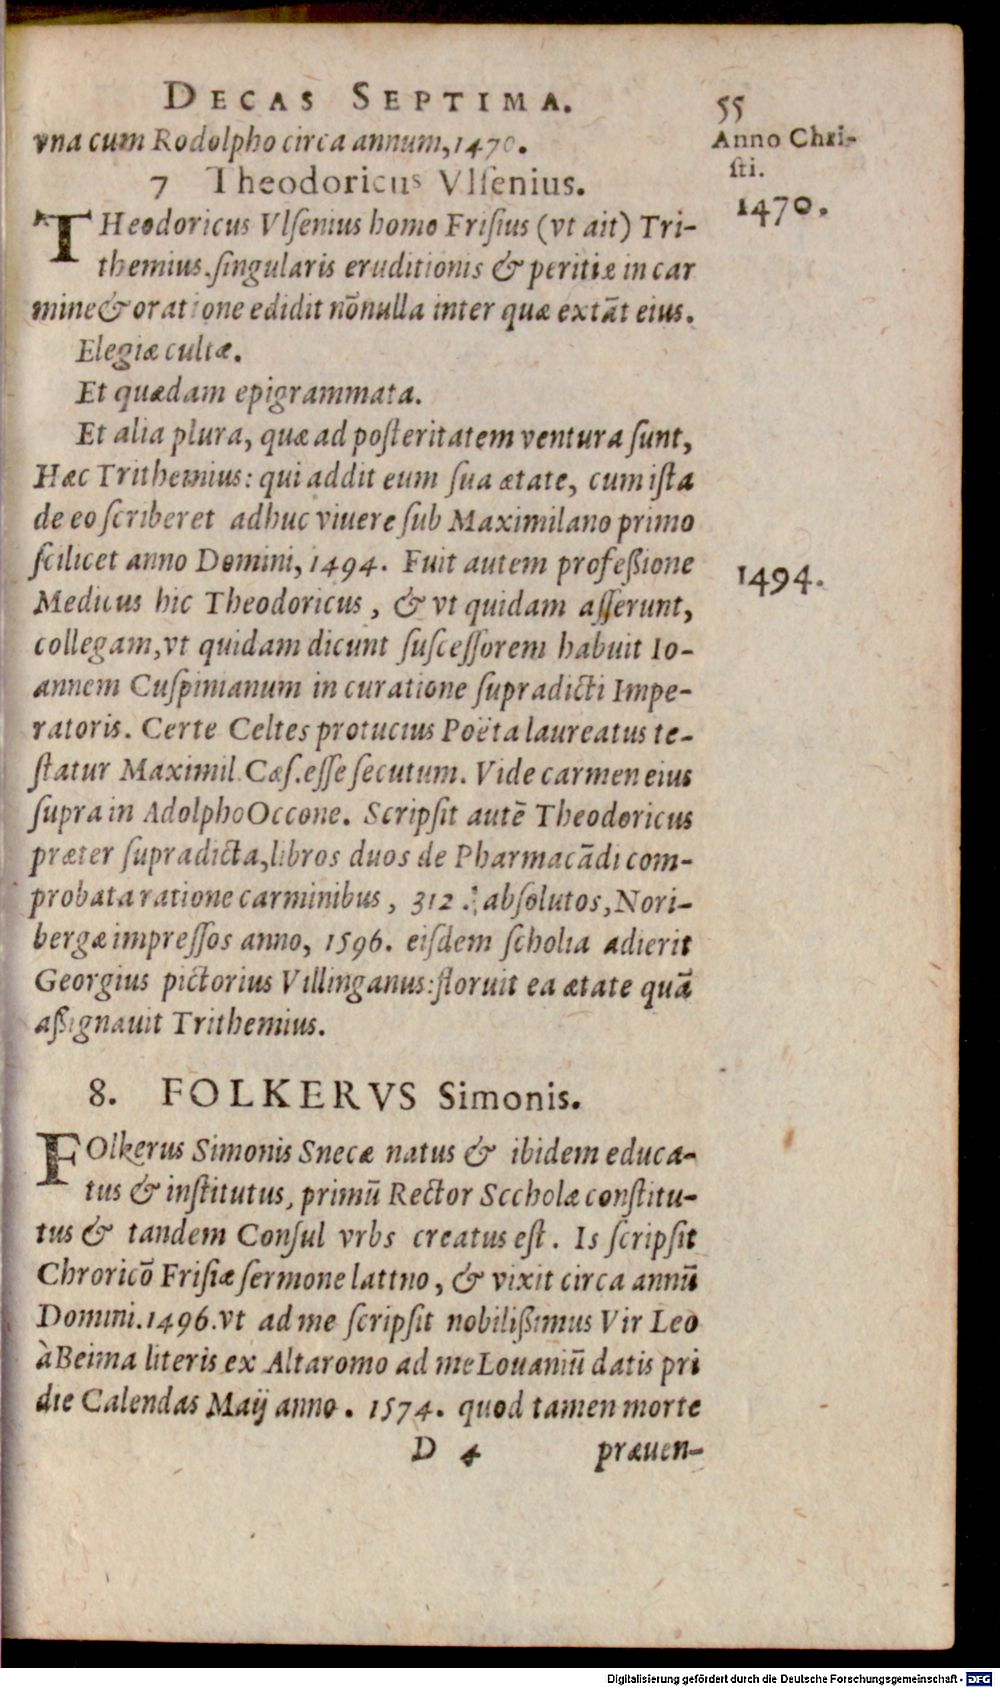 DECAS SEPTIMA. 55
vna cum Rodolpho circa annum, 1470.
Anno Chri-
sti.
1470.
7 Theodoricus Vlsenius.
THeodoricus Vlsenius homo Frisius (vt ait) Tri-
themius. singularis eruditionis & peritiæ in car
mine & oratione edidit nōnulla inter quæ extāt eius.
Elegiæ cultæ.
Et quædam epigrammata.
Et alia plura, quæ ad posteritatem ventura sunt,
Hæc Trithemius: qui addit eum sua ætate, cum ista
de eo scriberet adhuc viuere sub Maximilano primo
scilicet anno Domini, 1494. Fuit autem profeßione
1494.
Medicus hic Theodoricus, & vt quidam asserunt,
collegam, vt quidam dicunt suscessorem habuit Io-
annem Cuspinianum in curatione supradicti Impe-
ratoris. Certe Celtes protucius Poëta laureatus te-
statur Maximil. Cæs. esse secutum. Vide carmen eius
supra in Adolpho Occone. Scripsit autē Theodoricus
præter supradicta, libros duos de Pharmacādi com-
probata ratione carminibus, 312. absolutos, Nori-
bergæ impressos anno, 1596. eisdem scholia adierit
Georgius pictorius Villinganus: floruit ea ætate quā
aßignauit Trithemius.
8. FOLKERVS Simonis.
FOlkerus Simonis Snecæ natus & ibidem educa-
tus & institutus, primū Rector Sccholæ constitu-
tus & tandem Consul vrbs creatus est. Is scripsit
Chroricō Frisiæ sermone lattno, & vixit circa annū
Domini. 1496. vt ad me scripsit nobilißimus Vir Leo
à Beima literis ex Altaromo ad me Louaniū datis pri
die Calendas Maij anno. 1574. quod tamen morte
D 4 præuen-
Digitalisierung gefördert durch die Deutsche Forschungsgemeinschaft - DFG